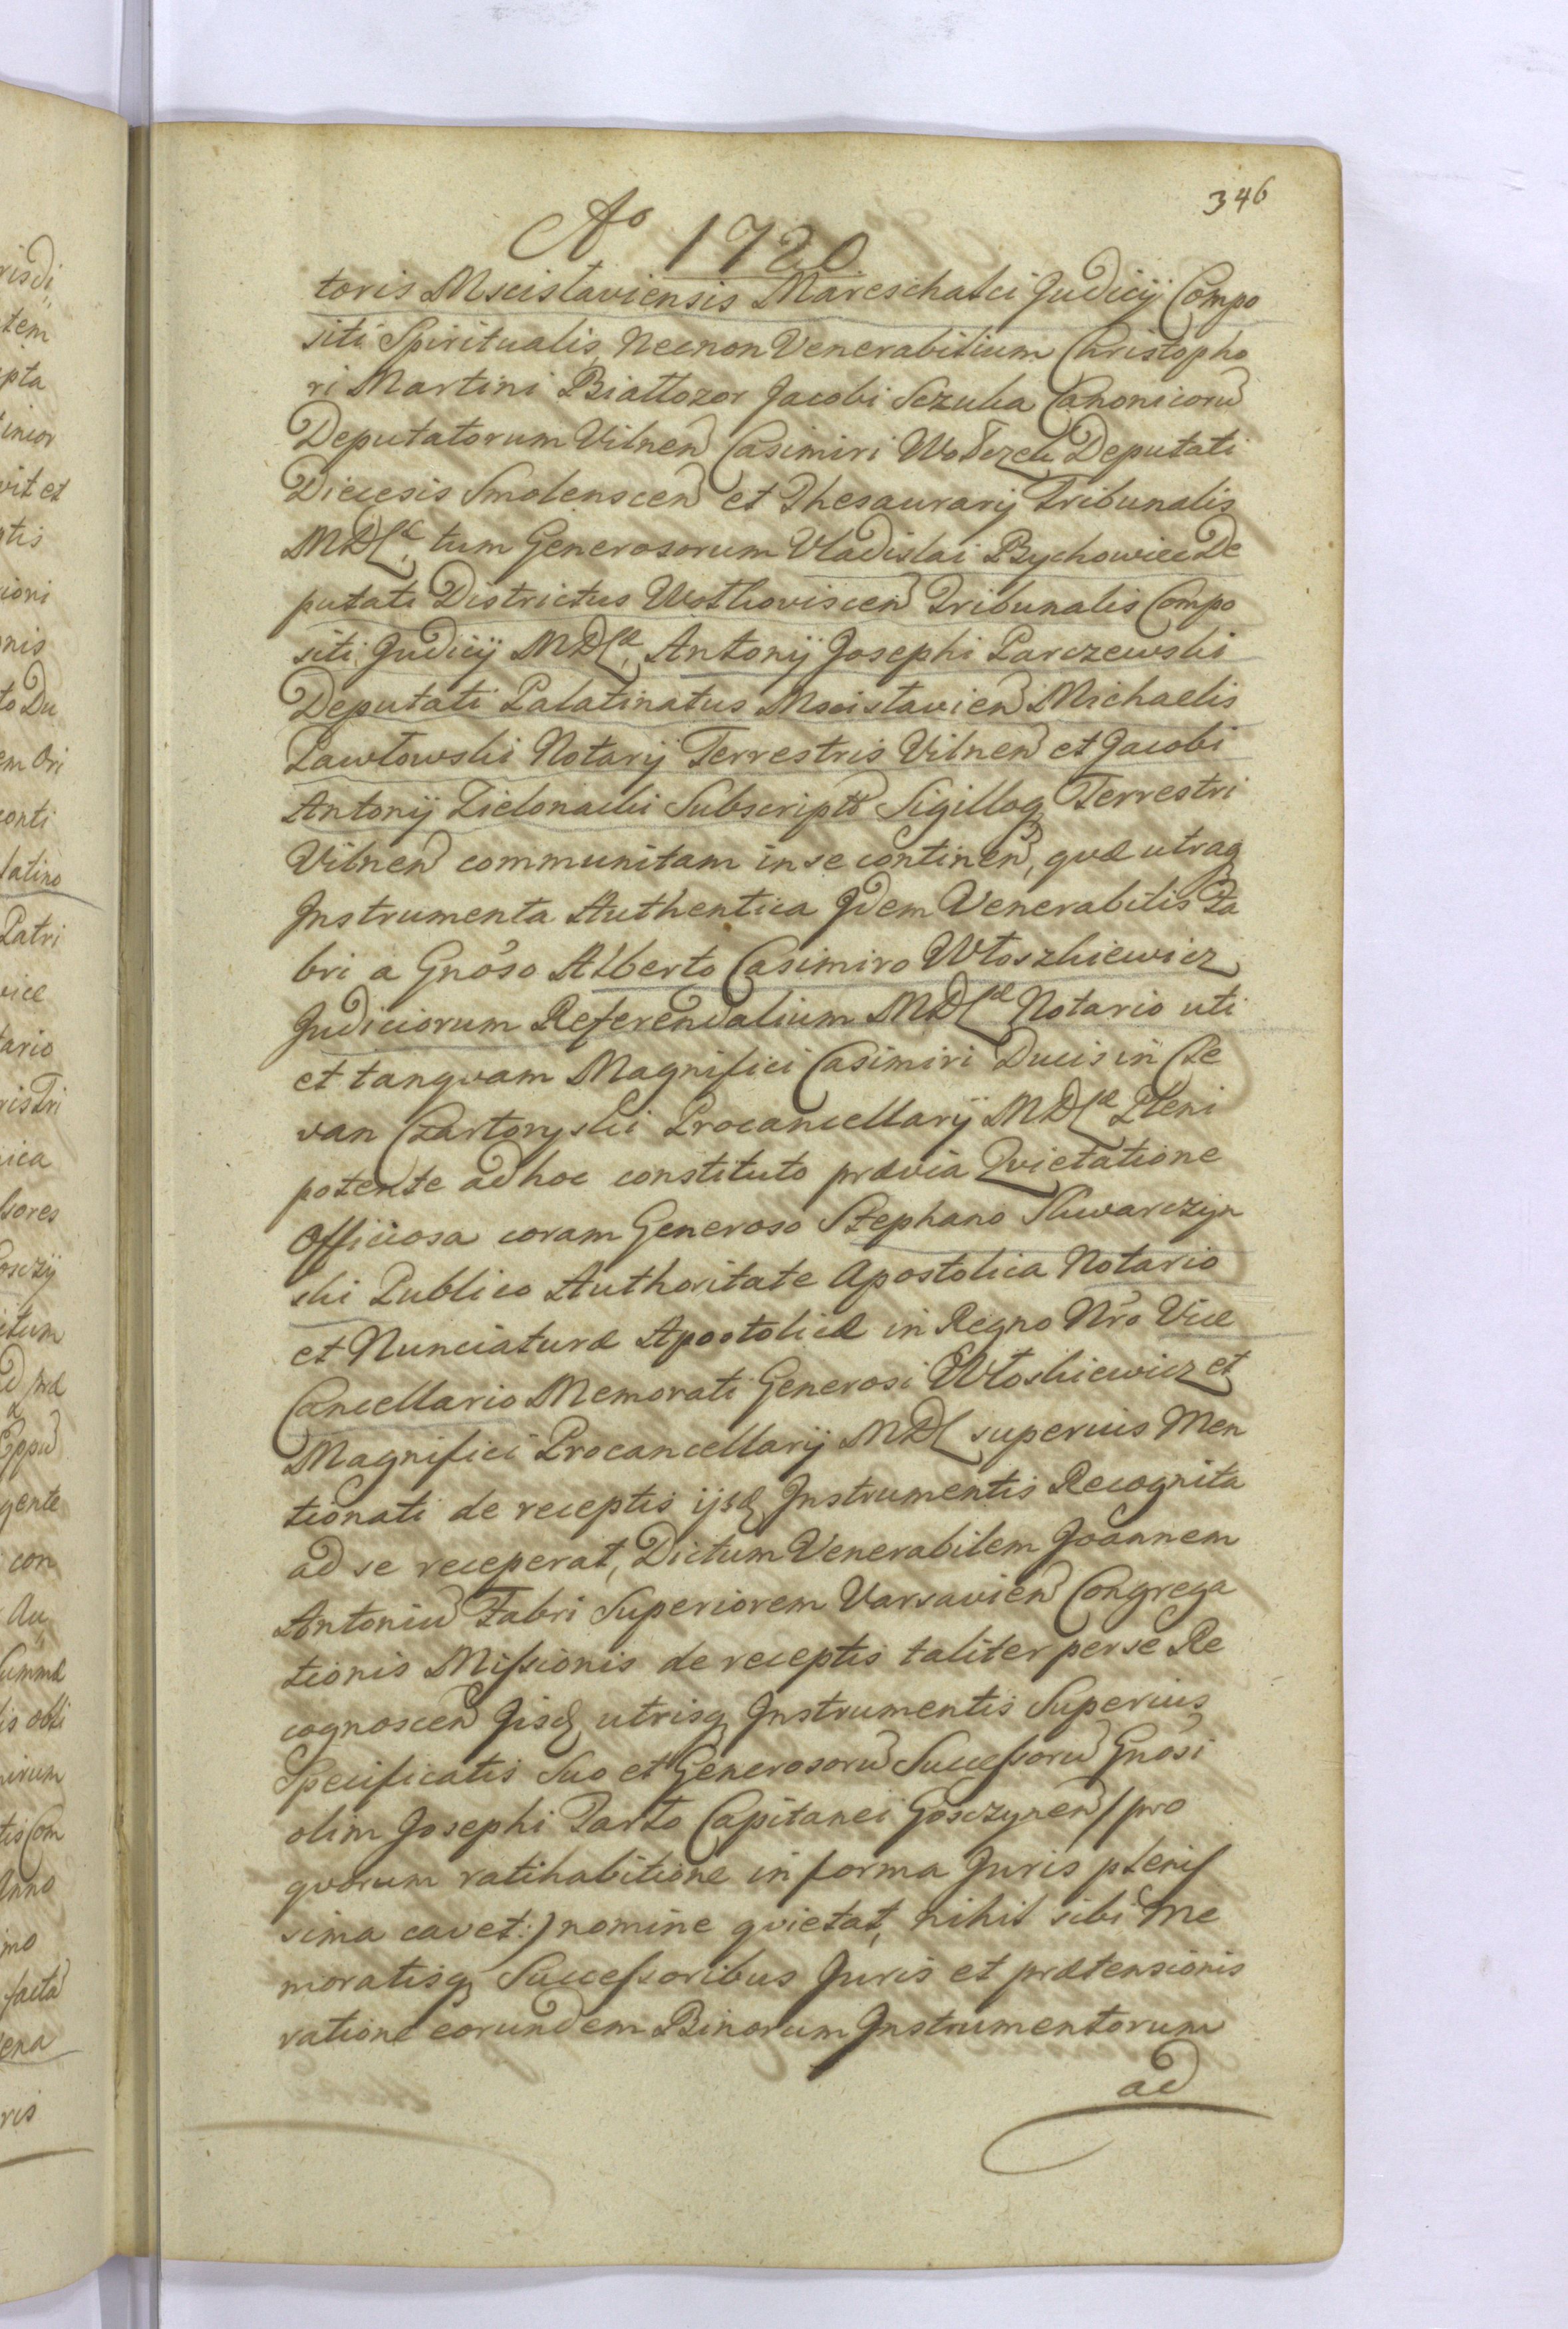 346
Aº 1720
toris Mscislaviensis Mareschalci Judicij Compo
siti Spiritualis, Necnon Venerabilium Christopho
ri Martini Białłozor Jacobi Sczuka Canonicorū
Deputatorum Vilnen Casimiri Deputati
Diecesis Smolenscen et Thesaurarij Tribunalis
MDL tum Generosorum Vladislai Bychowiec De
putati Districtus Wołkoviscen Tribunalis Compo
siti Judicij MDL Antonij Josephi Parczewski
Deputati Palatinatus Mscislavien Michaelis
Pawłowski Notarij Terrestris Vilnen et Jacobi
Antonij Zielonacki Subscripto Sigilloq Terrestri
Vilnen communitam in se continen, quæ utraq
Instrumenta Authentica Idem Venerabilis Fa
bri a Gnoso Alberto Casimiro Włoszkiewicz
Judiciorum Referendalium MDL Notario uti
et tanqvam Magnifici Casimiri Ducis in Cle
van Czartoryski Procancellarij MDL Pleni
potente ad hoc constituto prævia Qvietatione
Officiosa coram Generoso Stephano Skwarczyn
ski Publico Authoritate Apostolica Notario
et Nunciaturæ Apostolicæ in Regno Nro Vice
Cancellario Memorati Generosi Włoskiewicz et
Magnifici Procancellarij MDL superius Men
tionati de receptis ijsd Instrumentis Recognita
ad se receperat, Dictum Venerabilem Joannem
Antoniū Fabri Superiorem Varsavien Congrega
tionis Missionis de receptis taliter per se Re
cognoscen Iisd utrisq Instrumentis Superius
Specificatis Suo et Generosorū Successorū Gnosi
olim Josephi Tarło Capitanei Gosczynen /pro
qvorum ratihabitione in forma Juris plenis
sima cavet:) nomine qvietat, nihil sibi Me
moratisq Successoribus Juris et prætensionis
ratione eorundem Binorum Instrumentorum
ad